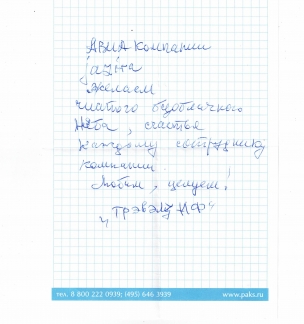 АВИА компании
jazira
желаем
чистого безоблачного
неба, счастья
каждому сотруднику
компании.
Любим, целуем!
„Трэвэлз
тел. 8 800 222 0939; (495) 646 3939 www.paks.ru